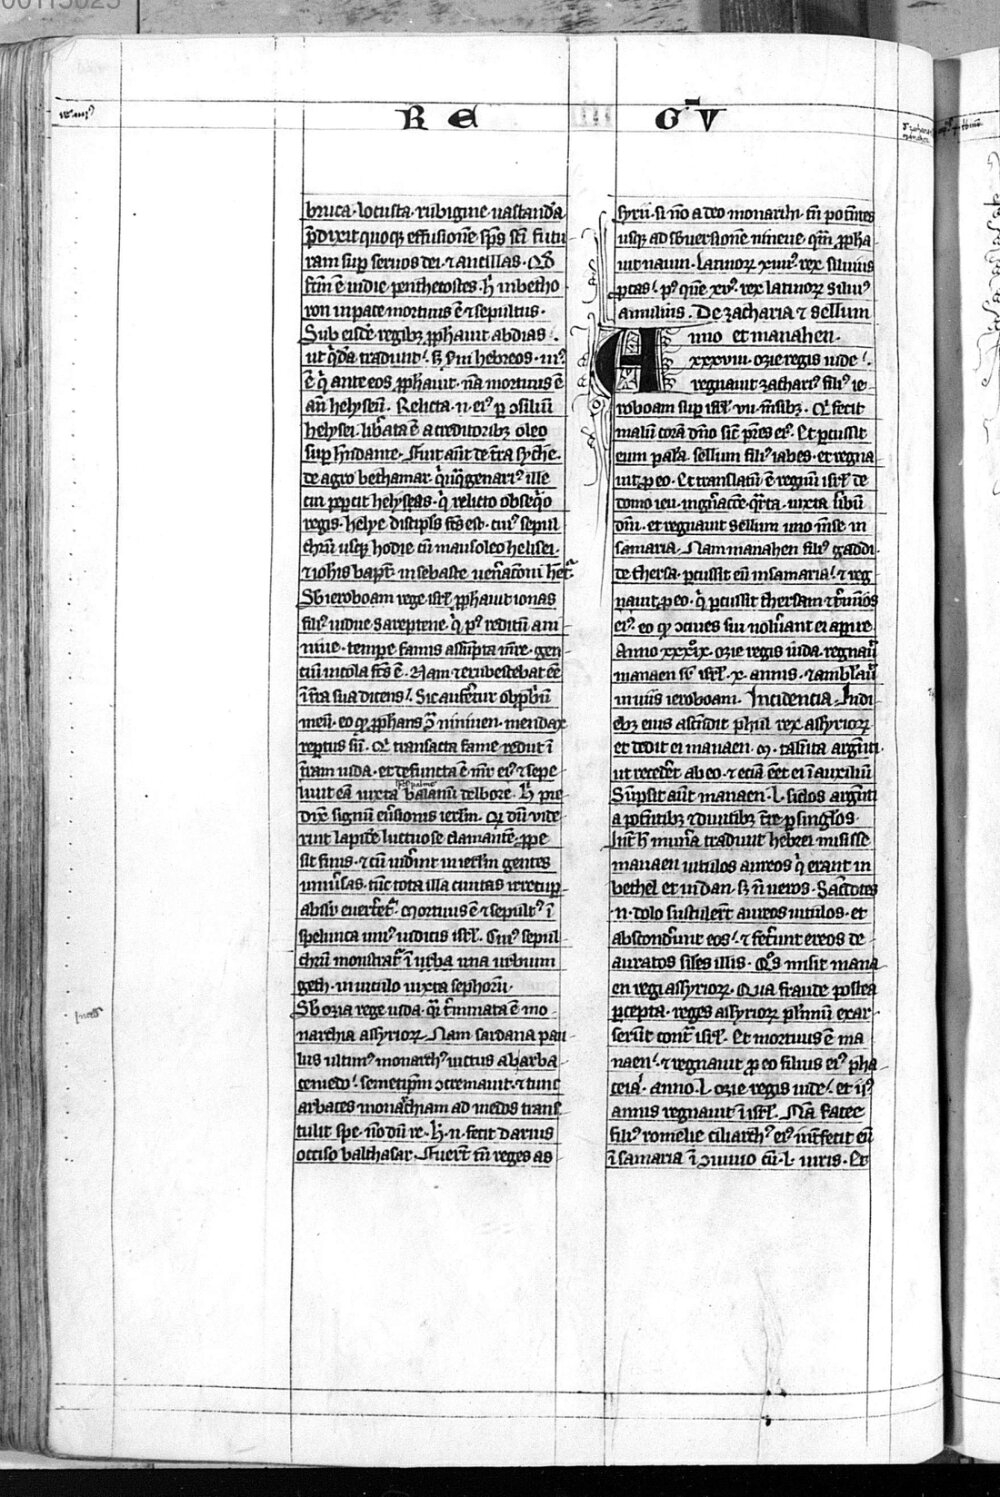 RE GŪ
bruca · locusta · rubigine uastanda
p̄dixit quoq; effusionē sp̄s sc̄i futu
ram sup̄ seruos dei · ⁊ ancillas · Qd̄
fc̄m ē in die penthecostes · h̄ in betho
ron in pace mortuus ē ⁊ sepultus ·
Sub eisdē regibꝫ ꝓphauit abdias ·
ut q̄dā tradunt · sꝫ ẜm hebreos · iii⁹
ē q̄ ante eos ꝓphauit · nā mortuus ē
an̄ helyseū · Relicta · n · ei⁹ ꝑ ɔsiliū
helysei lib̄ata ē a creditoribꝫ oleo
sup̄ hūdante · Fuit aūt de t̄ra sychē ·
de agro bethamar · q̇nq̇genari⁹ ille
cui pep̄cit helyseas · q̇ relicto obseq̇o
regis · helye discipl̄s fc̄s est · cui⁹ sepul
chrū usq; hodie cū mausoleo helisei ·
⁊ ioh̄is bapt̄ · in sebaste uen̄acōni het̄ ·
Sb̄ ieroboam rege isrl̄ ꝓphauit ionas
fili⁹ uidue sareptene · q̇ p⁹ reditū a ni
niue · tempe famis assūpta mr̄e · gen
tiū incola fc̄s ē · Nam ⁊ erubescebat eē
ī t̄ra sua dicens · Sic auferur obprb̄iū
meū · eo qꝫ ꝓphans ɔ̄ niniuen · mendax
rep̄tus sū · Qr̄ transacta fame redūt ī
t̄ram iuda · et defuncta ē mr̄ ei⁹ ⁊ sepe
liuit eā iuxta balanū delbore · h̄ pre
dix̄ signū eūsionis ierl̄m · Qn̄ dūi vide
rint lapidē luctuose clamantē ꝓpe
sit finis · ⁊ cū uid̄int in ierl̄m gentes
uniūsas · tūc tota illa ciuitas
abs͛ eu͛tet̄ · Mortuus ē ⁊ sepult⁹ ī
spelunca uni⁹ iudicis isrl̄ · Cui⁹ sepul
chrū monstrat̄ ī urba una urbium
geth · in uiculo iuxta sephorū ·
Sb̄ ozia rege iuda · q̇ t̄minata ē mo
narchia assyrioꝝ · Nam sardana pau
lus ultim⁹ monarch⁹ uictus ab arba
ce medo · semetip̄m ɔcremauit · ⁊ tunc
arbaces monarchiam ad medos trans
tulit spe · nō dū re · h̄ · n · fecit darius
occiso balthasar · Fuert̄ tn̄ reges as
syrii · si nō adeo monarchi · tn̄ potētes
usq; ad sbuersionē niniue · qm̄ ꝓpha
uit naum · Latinoꝝ xiiii⁹ · rex siluius
ꝓcas · p⁹ quē xv⁹ · rex latinoꝝ silui⁹
amulius · De zacharia ⁊ sellum
Anno et manahen ·
xxxviii · ozie regis iude ·
regnauit zachari⁹ fili⁹ ie
roboam sup̄ isrl̄ · vii · m̄sibꝫ · Qr̄ fecit
malū corā dn̄o sic̄ pr̄es ei⁹ · Et ꝑcussit
eum palā sellum fili⁹ iabes · et regna
uit ꝓ eo · Et translatū ē regnū isrl̄ de
domo ieu · in gn̄acōe · q̇rta · iuxta ūbū
dn̄i · et regnauit sellum uno m̄se in
samaria · Nam manahen fili⁹ gaddi ·
de thersa · ꝑcussit eū in samaria · ⁊ reg
nauit ꝓ eo · q̇ ꝑcussit thersam ⁊ t̄minos
ei⁹ · eo qꝫ ɔciues sui noluerant ei apire
Anno xxxix · ozie regis iuda regnauit
manaen sr̄ isrl̄ · x · annis · ⁊ amblauit
in uiis ieroboam · Incidencia · In di
ebꝫ eius ascendit phul rex assyrioꝝ
et dedit ei manaen · m · talēnta argēti ·
ut recedet̄ ab eo · ⁊ eciā eēt ei ī auxiliū
Sūpsit aūt manaen · l · siclos argēti
a potētibꝫ ⁊ diuitibꝫ t̄re ꝑ singl̄os ·
Int̄ h̄ mun̄a tradunt hebrei misisse
manaen uitulos aureos q̇ erant in
bethel et in dan · sꝫ n̄ ueros · Sac̄dotes
· n · dolo sustulert̄ aureos uitulos · et
abscondunt eos · ⁊ fec̄unt ereos de
auratos siles illis · Q̇s misit mana
en regi assyrioꝝ · Qua fraude postea
ꝑcepta · reges assyrioꝝ plīmū exar
serūt cont̄ isrl̄ · Et mortuus ē ma
naen · ⁊ regnauit ꝓ eo filius ei⁹ pha
ceia · anno · l · ozie regis iude · et ii⁹
annis regnauit ī isrl̄ · Nā facee
fili⁹ romelie ciliarch⁹ ei⁹ int̄fecit eū
ī samaria ī ɔuiuio cū · l · uiris · Et